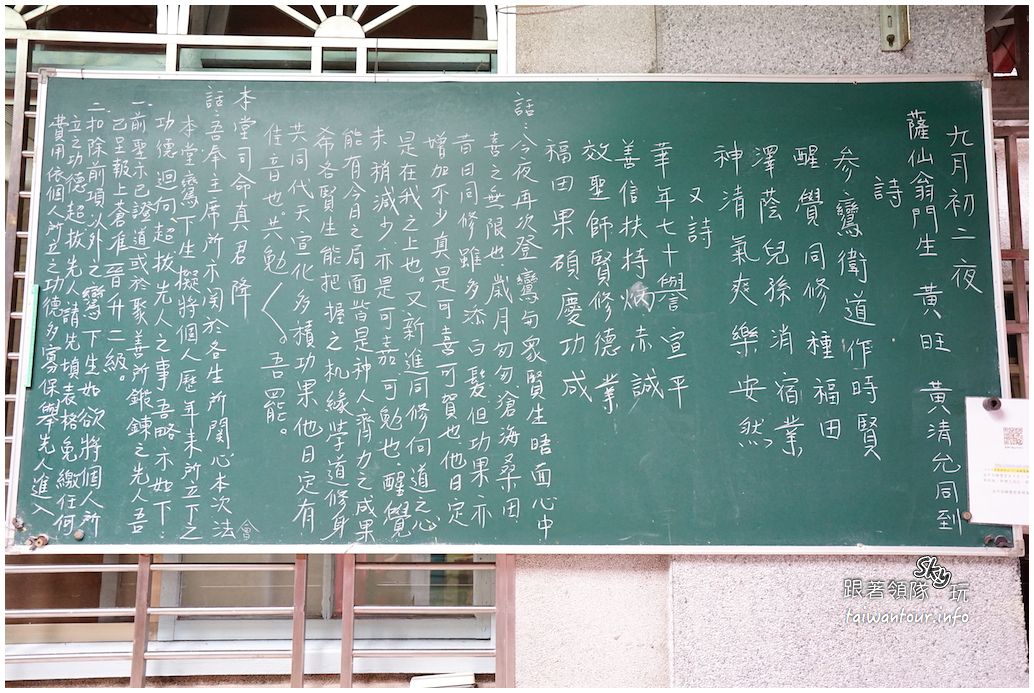 九月初二夜
薩仙翁門生 黃旺 黃清允同到
詩
參鸞衛道作時賢
醒覺同修種福田
澤蔭兒孫消宿業
神清氣爽樂安然
又詩
華年七十譽宣平
善信扶持炳赤誠
效聖師賢修德業
福田果碩慶功成
話：今夜再次登鸞與眾賢生晤面心中
喜之無限也、歲月匆匆、滄海桑田
昔日同修雖多添白髮但功果亦
增加不少真是可喜可賀也、他日定
是在我之上也。又新進同修向道之心
未稍減少、亦是可嘉可勉也、醒覺
能有今日之局面皆是神人齊力之成果
希各賢生能把握之机緣學道修身
共同代天宣化多積功果、他日定有
佳音也。共勉〱。吾罷。
本堂司命真君 降
話：吾奉主席所示関於各生所関心本次法
會
本堂鸞下生擬將個人歷年來所立下之
功德迴向、超拔先人之事吾略示如下：
一、前聖示已證道或於聚善所鍛鍊之先人吾
已呈報上蒼准晉升二級。
二、扣除前項以外之鸞下生如欲將個人所
立之功德超拔先人請先填表格免繳任何
費用依個人所立之功德多寡保舉先人進入
跟著領隊Sky玩
taiwantour.info